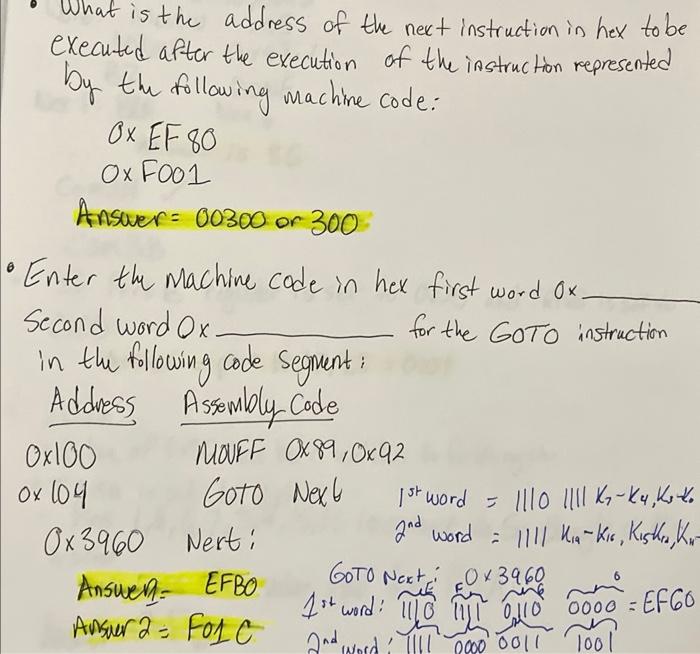 • What is the address of the next instruction in hex to be
executed after the execution of the instruction represented
by the following machine code:
0x EF80
0x F001
Answer = 00300 or 300
• Enter the machine code in hex first word 0x ________
Second word 0x ________ for the GOTO instruction
in the following code segment:
Address Assembly Code
0x100 MOVFF 0x89, 0x92
0x104 GOTO Next 1st word = 1110 1111 K7-K4, K3-K0
0x3960 Next: 2nd word = 1111 K19-K16, K15K12, K11-
GOTO Next: 0x3960
Answer1 = EFB0 1st word: 1110 1111 0110 0000 = EF60
E F 6 0
Answer2 = F01C 2nd word: 1111 0000 0011 1001